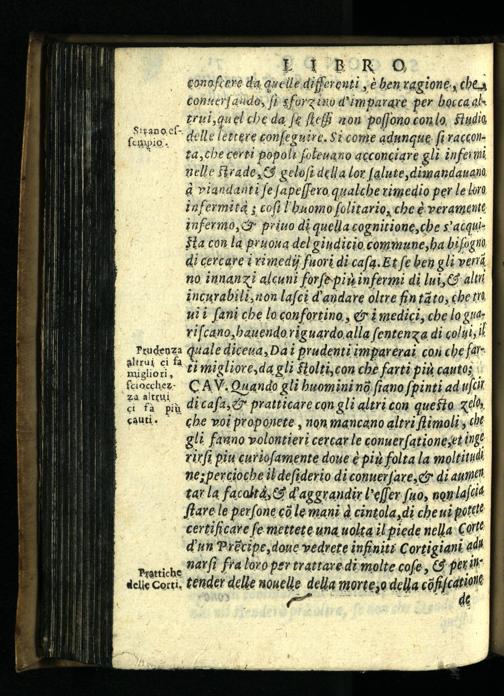 LIBRO
conoscere da quelle differenti, è ben ragione, che,
conuersando, si sforzino d'imparare per bocca al-
trui, quel che da se stessi non possono con lo studio
delle lettere conseguire. Si come adunque si raccon-
ta, che certi popoli soleuano acconciare gli infermi
nelle strade, & gelosi della lor salute, dimandauano
à viandanti se sapessero qualche rimedio per le loro
infermità; così l'huomo solitario, che è veramente
infermo, & priuo di quella cognitione, che s'acqui-
sta con la pruoua del giudicio commune, ha bisogno
di cercare i rimedij fuori di casa. Et se ben gli verrã
no innanzi alcuni forse più infermi di lui, & altri
incurabili, non lasci d'andare oltre fin tãto, che tro
ui i sani che lo confortino, & i medici, che lo gua-
riscano, hauendo riguardo alla sentenza di colui, il
quale diceua, Da i prudenti imparerai con che far-
ti migliore, da gli stolti, con che farti più cauto;
CAV. Quando gli huomini nõ siano spinti ad uscir
di casa, & pratticare con gli altri con questo zelo,
che voi proponete, non mancano altri stimoli, che
gli fanno volontieri cercar le conuersatione, et inge
rirsi piu curiosamente doue è più folta la moltitudi
ne; percioche il desiderio di conuersare, & di aumen
tar la facoltà, & d'aggrandir l'esser suo, non lascia
stare le persone cõ le mani à cintola, di che ui potete
certificare se mettete una uolta il piede nella Corte
d'un Prẽcipe, doue vedrete infiniti Cortigiani adu
narsi fra loro per trattare di molte cose, & per in-
tender delle nouelle della morte, o della cõfiscatione
de
Strano es-
sempio.
Prudenza
altrui ci fa
migliori,
sciocchez-
za altrui
ci fa più
cauti.
Prattiche
delle Corti.